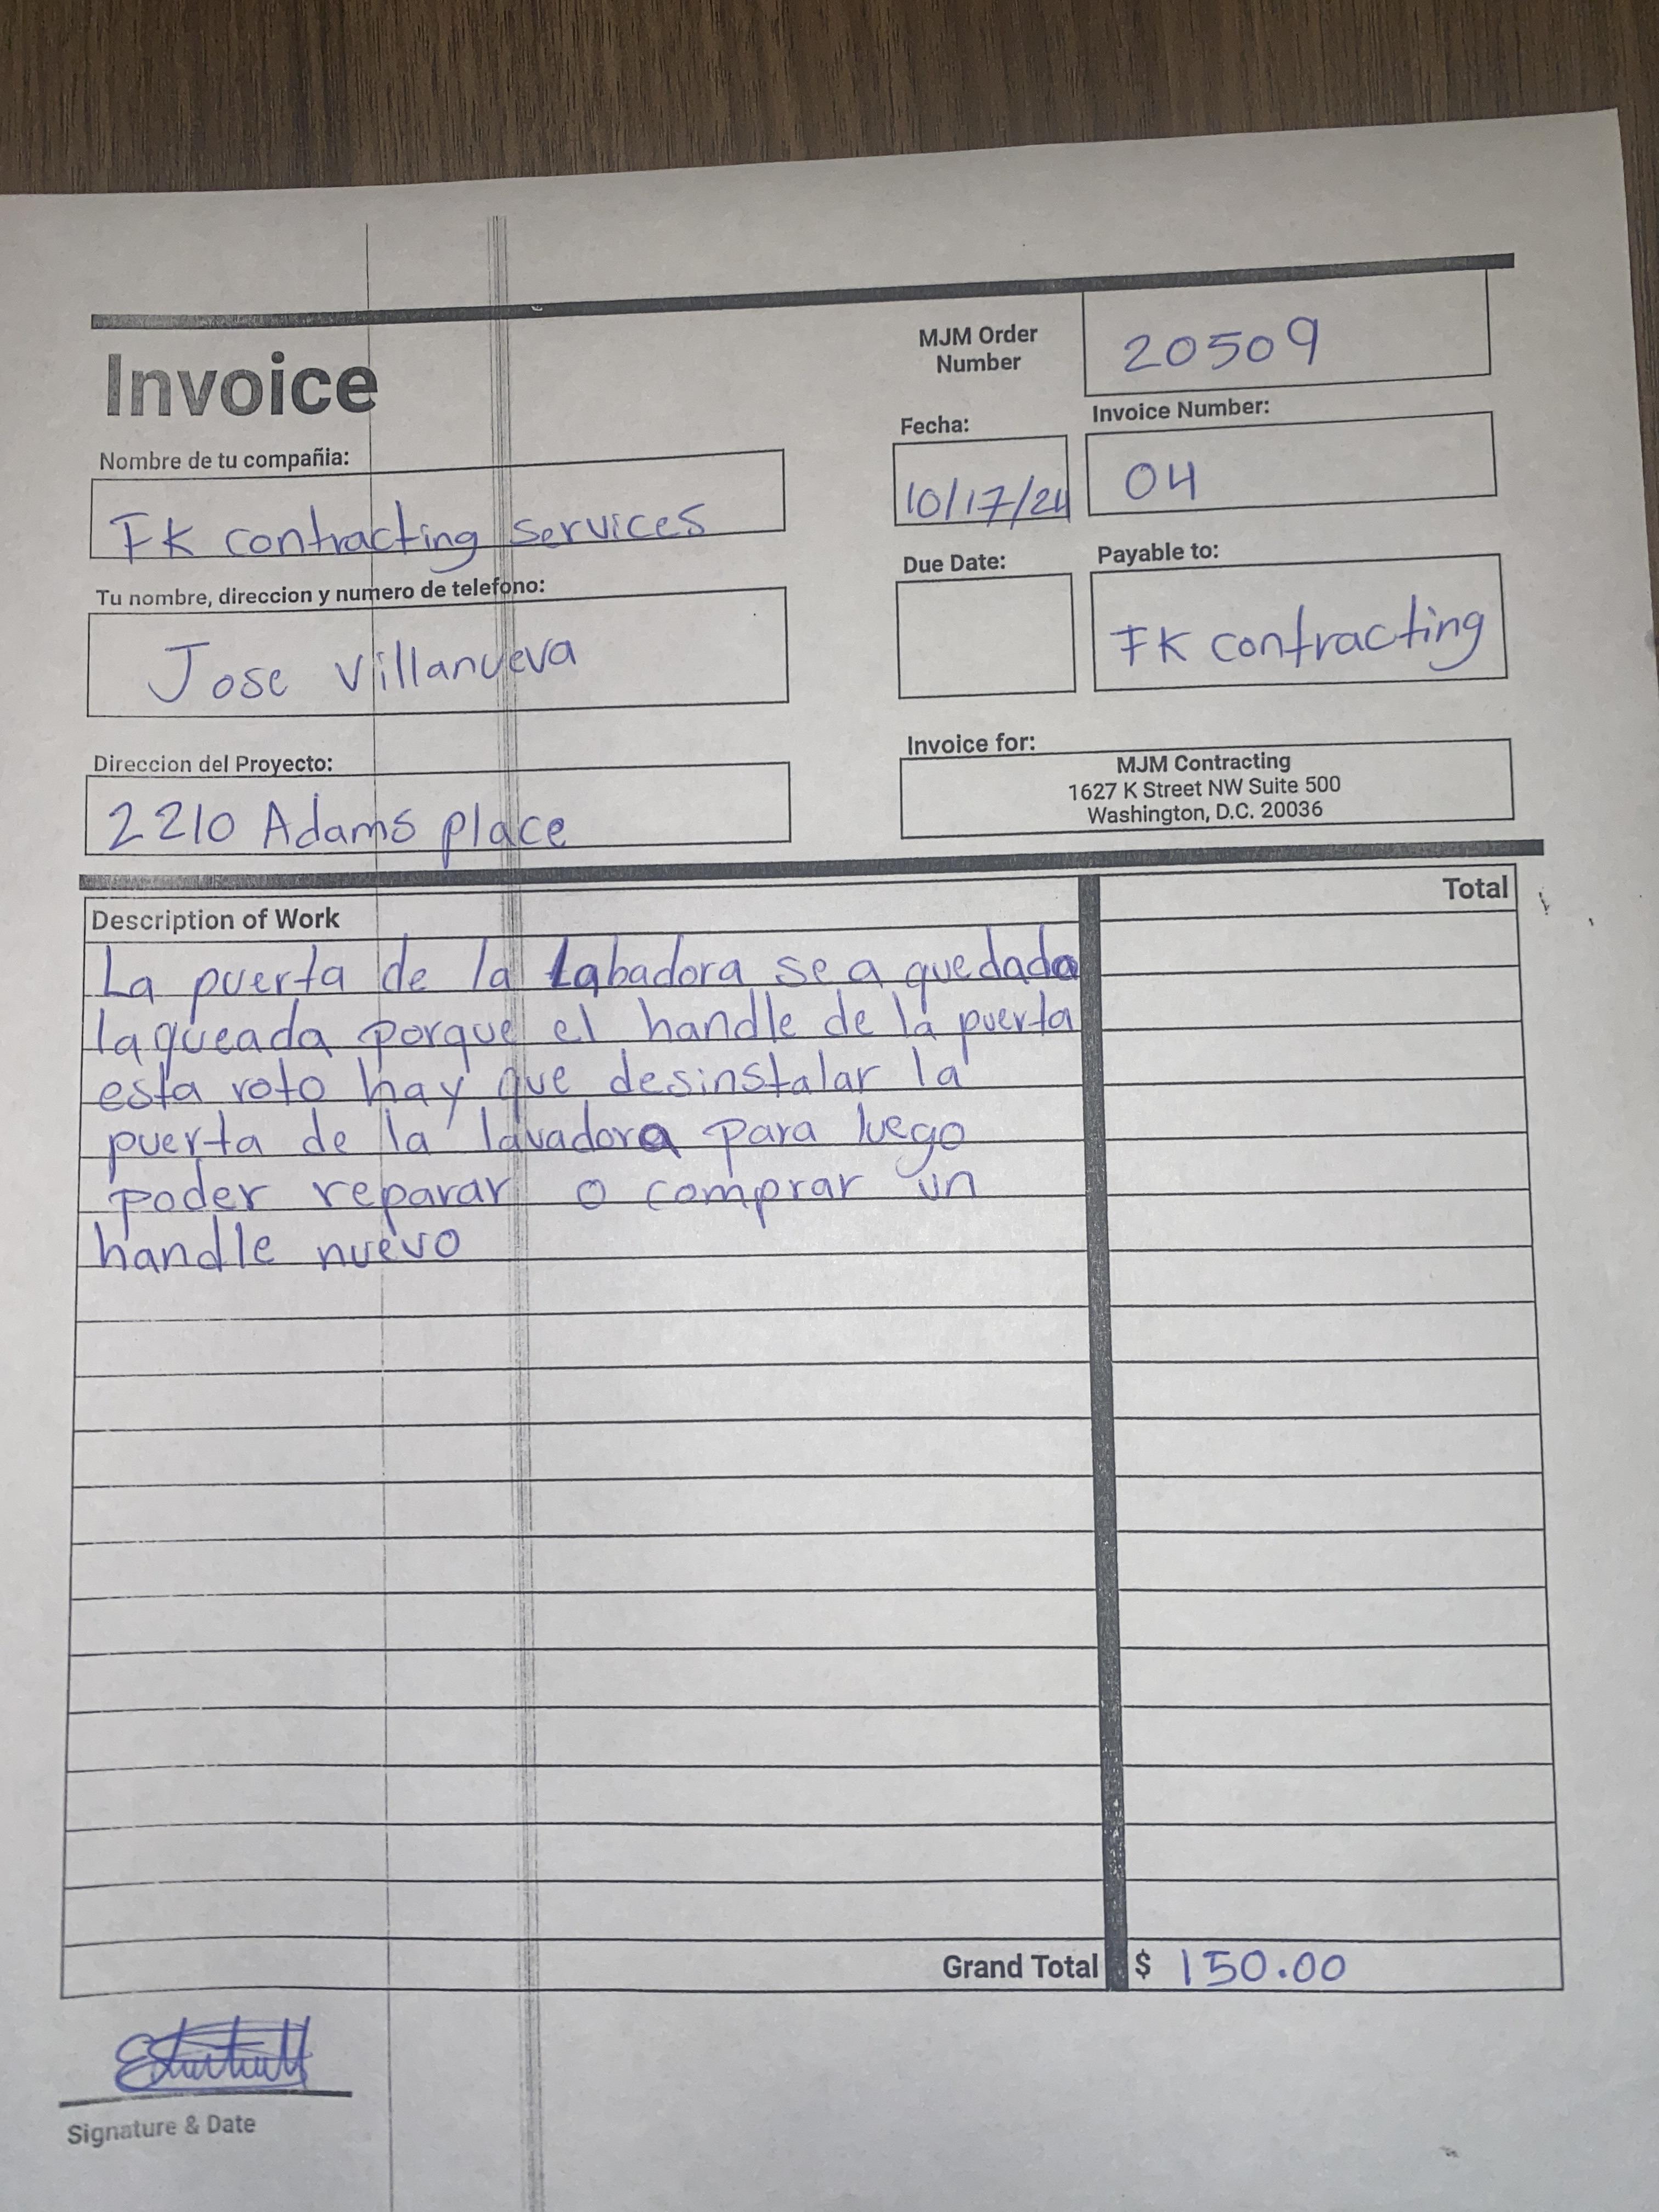 Invoice
MJM Order
Number
20509
Nombre de tu compañia:
FK contracting services
Fecha:
10/17/24
Invoice Number:
04
Tu nombre, direccion y numero de telefono:
Jose Villanueva
Due Date:
Payable to:
FK contracting
Direccion del Proyecto:
2210 Adams place
Invoice for:
MJM Contracting
1627 K Street NW Suite 500
Washington, D.C. 20036
Description of Work
Total
La puerta de la Labadora se a quedada
laqueada porque el handle de la puerta
esta roto hay que desinstalar la
puerta de la lavadora para luego
poder reparar o comprar un
handle nuevo
Grand Total $ 150.00
Signature & Date